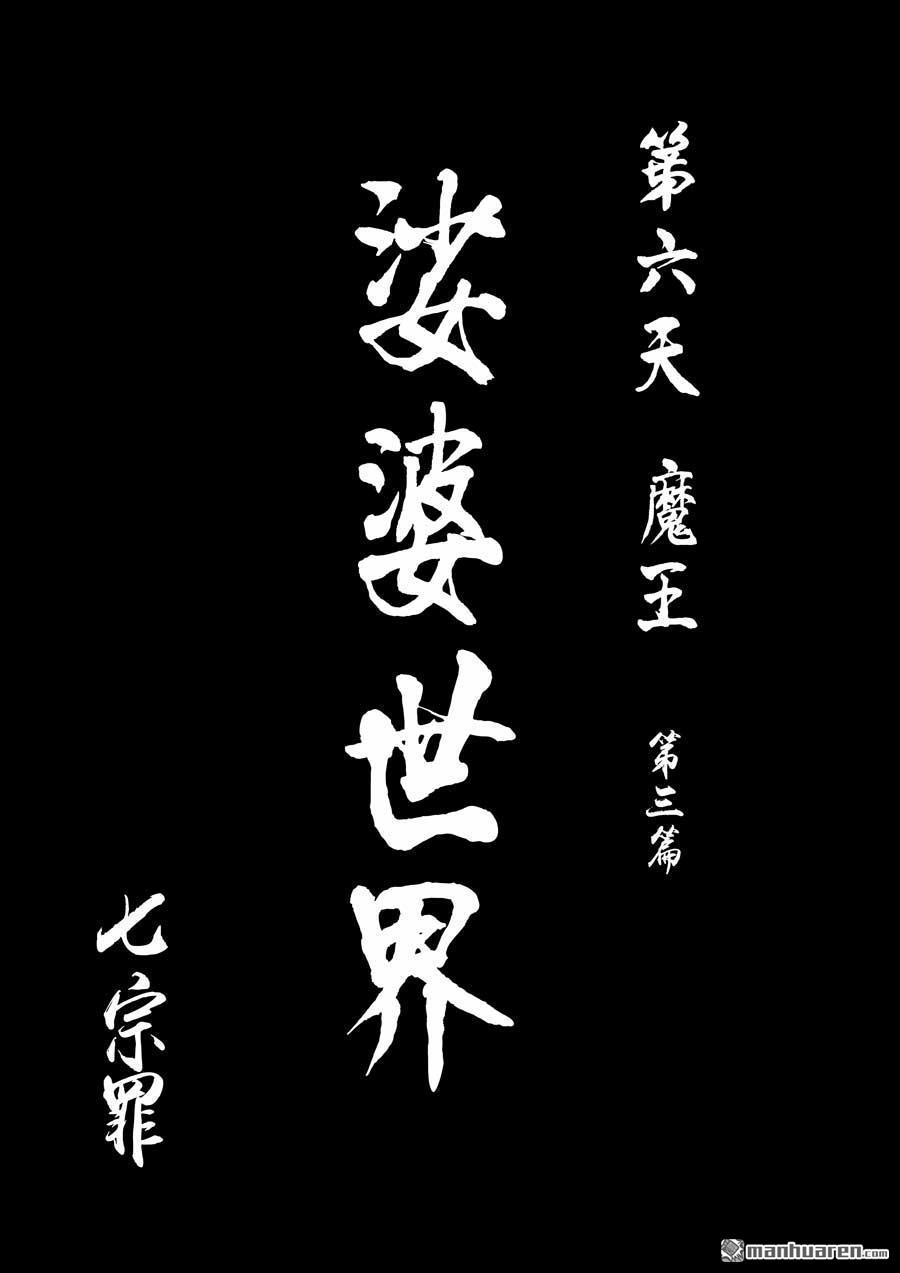 第六天 魔王 第三篇
娑婆世界
七宗罪
manhuaren.com